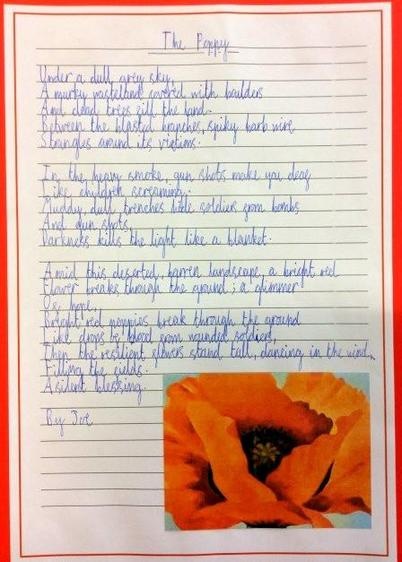 The Poppy
Under a dull grey sky,
A murky wasteland covered with boulders
And dead trees fill the land.
Between the blasted branches, spiky barb wire
Strangles around its victims.
In the heavy smoke, gun shots make you deaf
Like children screaming.
Muddy, dull trenches hide soldiers from bombs
And gun shots,
Darkness kills the light like a blanket.
Amid this deserted, barren landscape, a bright red
Flower breaks through the ground; a glimmer
Of hope,
Bright red poppies break through the ground
Like drops of blood from wounded soldiers,
Then the resilient flowers stand tall, dancing in the wind,
Filling the fields.
A silent blessing.
By Joe